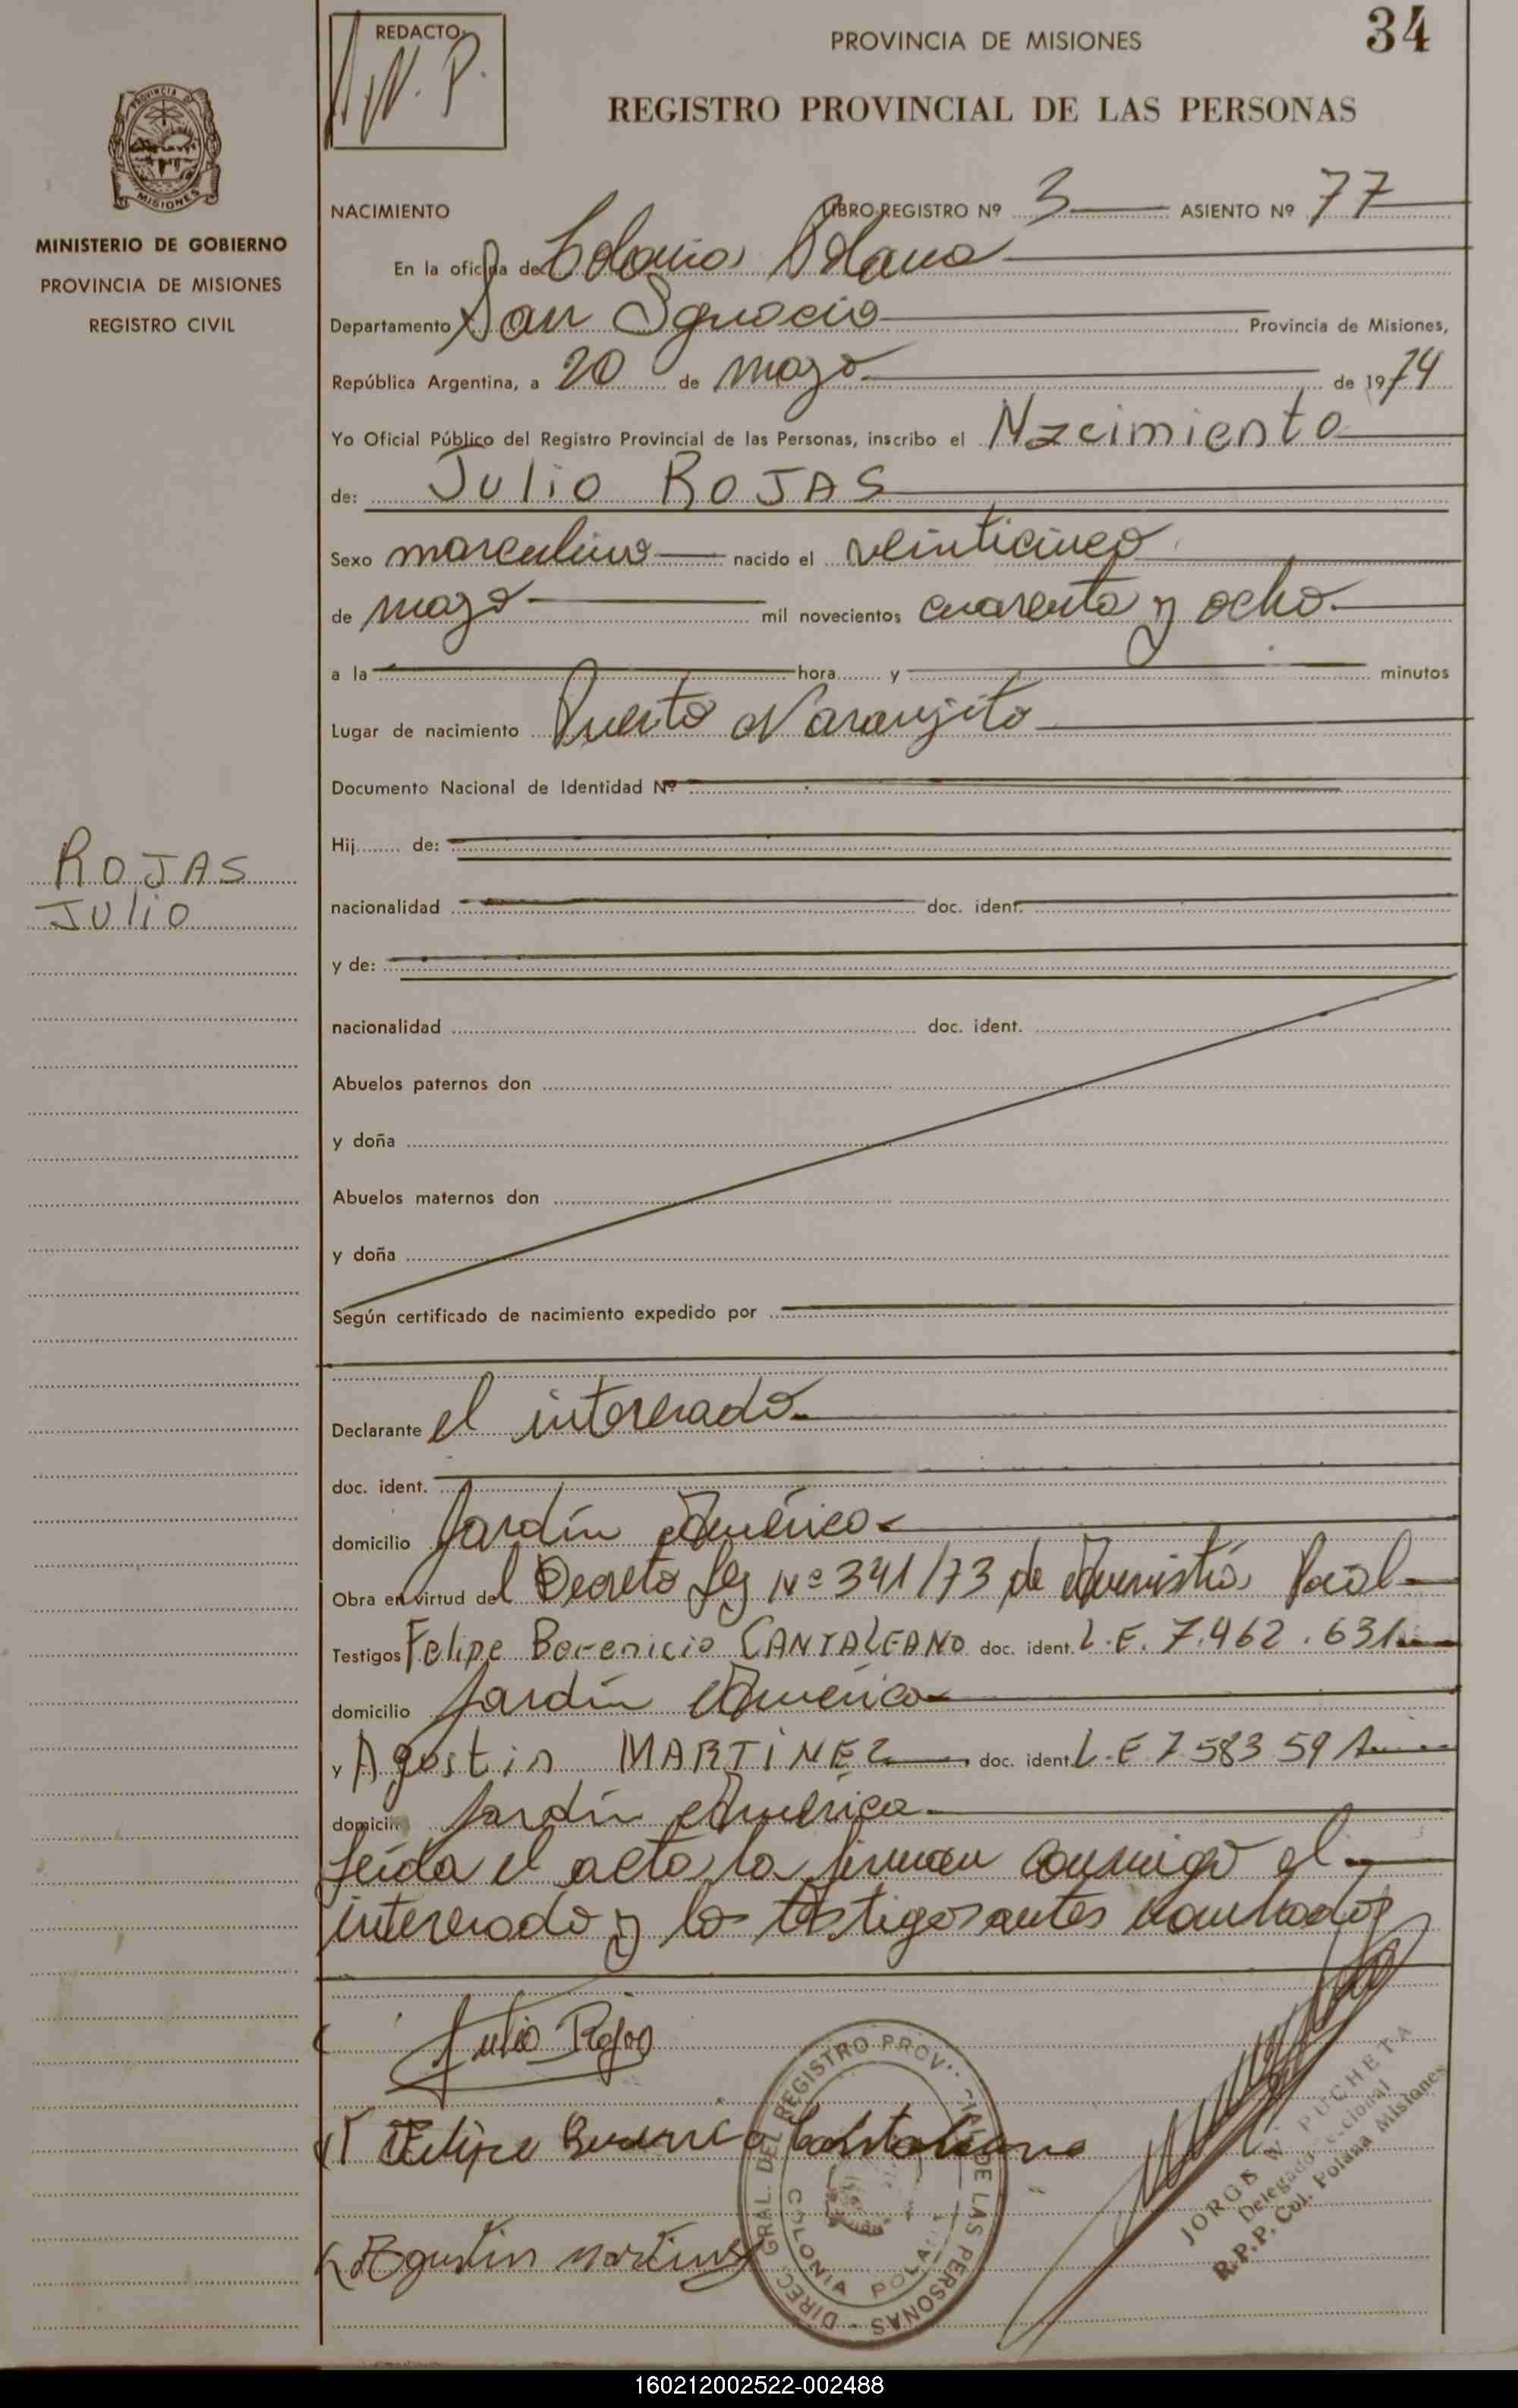 34
REDACTO:
W. P.
PROVINCIA DE MISIONES
REGISTRO PROVINCIAL DE LAS PERSONAS
PROVINCIA DE
MISIONES
MINISTERIO DE GOBIERNO
PROVINCIA DE MISIONES
REGISTRO CIVIL
NACIMIENTO LIBRO REGISTRO Nº 3 ASIENTO Nº 77
En la oficina de Colonia Polana
Departamento San Ignacio Provincia de Misiones,
República Argentina, a 20 de mayo de 1974
Yo Oficial Público del Registro Provincial de las Personas, inscribo el Nacimiento
de: Julio ROJAS
Sexo masculino nacido el veinticinco
de mayo mil novecientos cuarenta y ocho
a la hora y minutos
Lugar de nacimiento Puerto Naranjito
Documento Nacional de Identidad Nº
Hij de:
ROJAS
JULIO
nacionalidad doc. ident.
y de:
nacionalidad doc. ident.
Abuelos paternos don
y doña
Abuelos maternos don
y doña
Según certificado de nacimiento expedido por
Declarante el interesado
doc. ident.
domicilio Jardín América
Obra en virtud del Decreto Ley Nº 341/73 de Amnistía
Testigos Felipe Berenicio CANTALEANO doc. ident. L.E. 7.462.631
domicilio Jardín América
y Agostin MARTINEZ doc. ident. L.E 7.583.591
domicilio Jardín América
Leída el acta, la firman conmigo el
interesado y los testigos antes nombrados
Julio Rojas
Felipe Berenicio Cantaleano
Agustin Martinez
DIREC. GRAL. DEL REGISTRO PROV. DE LAS PERSONAS
COLONIA POLANA
JORGE W. PUCHETA
Delegado Seccional
R.P.P. Col. Polana Misiones
160212002522-002488